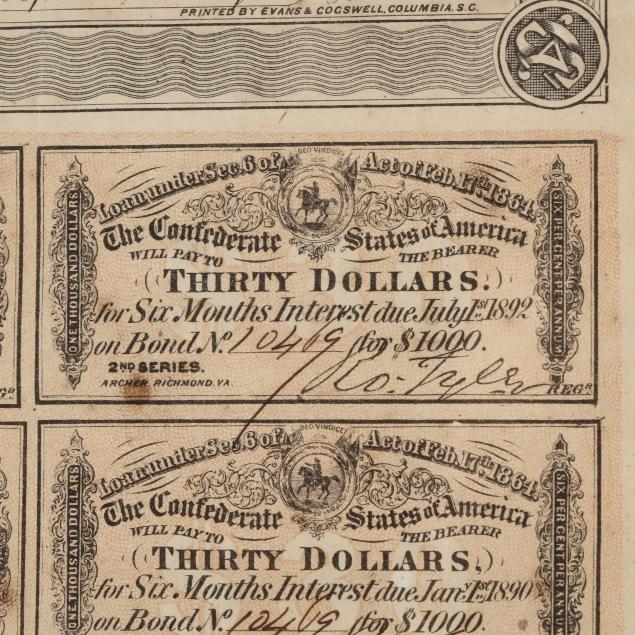 PRINTED BY EVANS & COGSWELL, COLUMBIA. S.C.
CSA
DEO VINDICE
Loan under Sec. 6 of Act of Feb. 17th 1864.
The Confederate States of America
WILL PAY TO THE BEARER
THIRTY DOLLARS.
for Six Months Interest due July 1st 1892
on Bond No. 10469 for $1000.
2ND SERIES.
ARCHER, RICHMOND. VA.
Ro. Tyler REGR
ONE THOUSAND DOLLARS
SIX PER CENT PER ANNUM
DEO VINDICE
Loan under Sec. 6 of Act of Feb. 17th 1864.
The Confederate States of America
WILL PAY TO THE BEARER
THIRTY DOLLARS,
for Six Months Interest due Jany 1st 1890
on Bond No. 10469 for $1000.
ONE THOUSAND DOLLARS
SIX PER CENT PER ANNUM